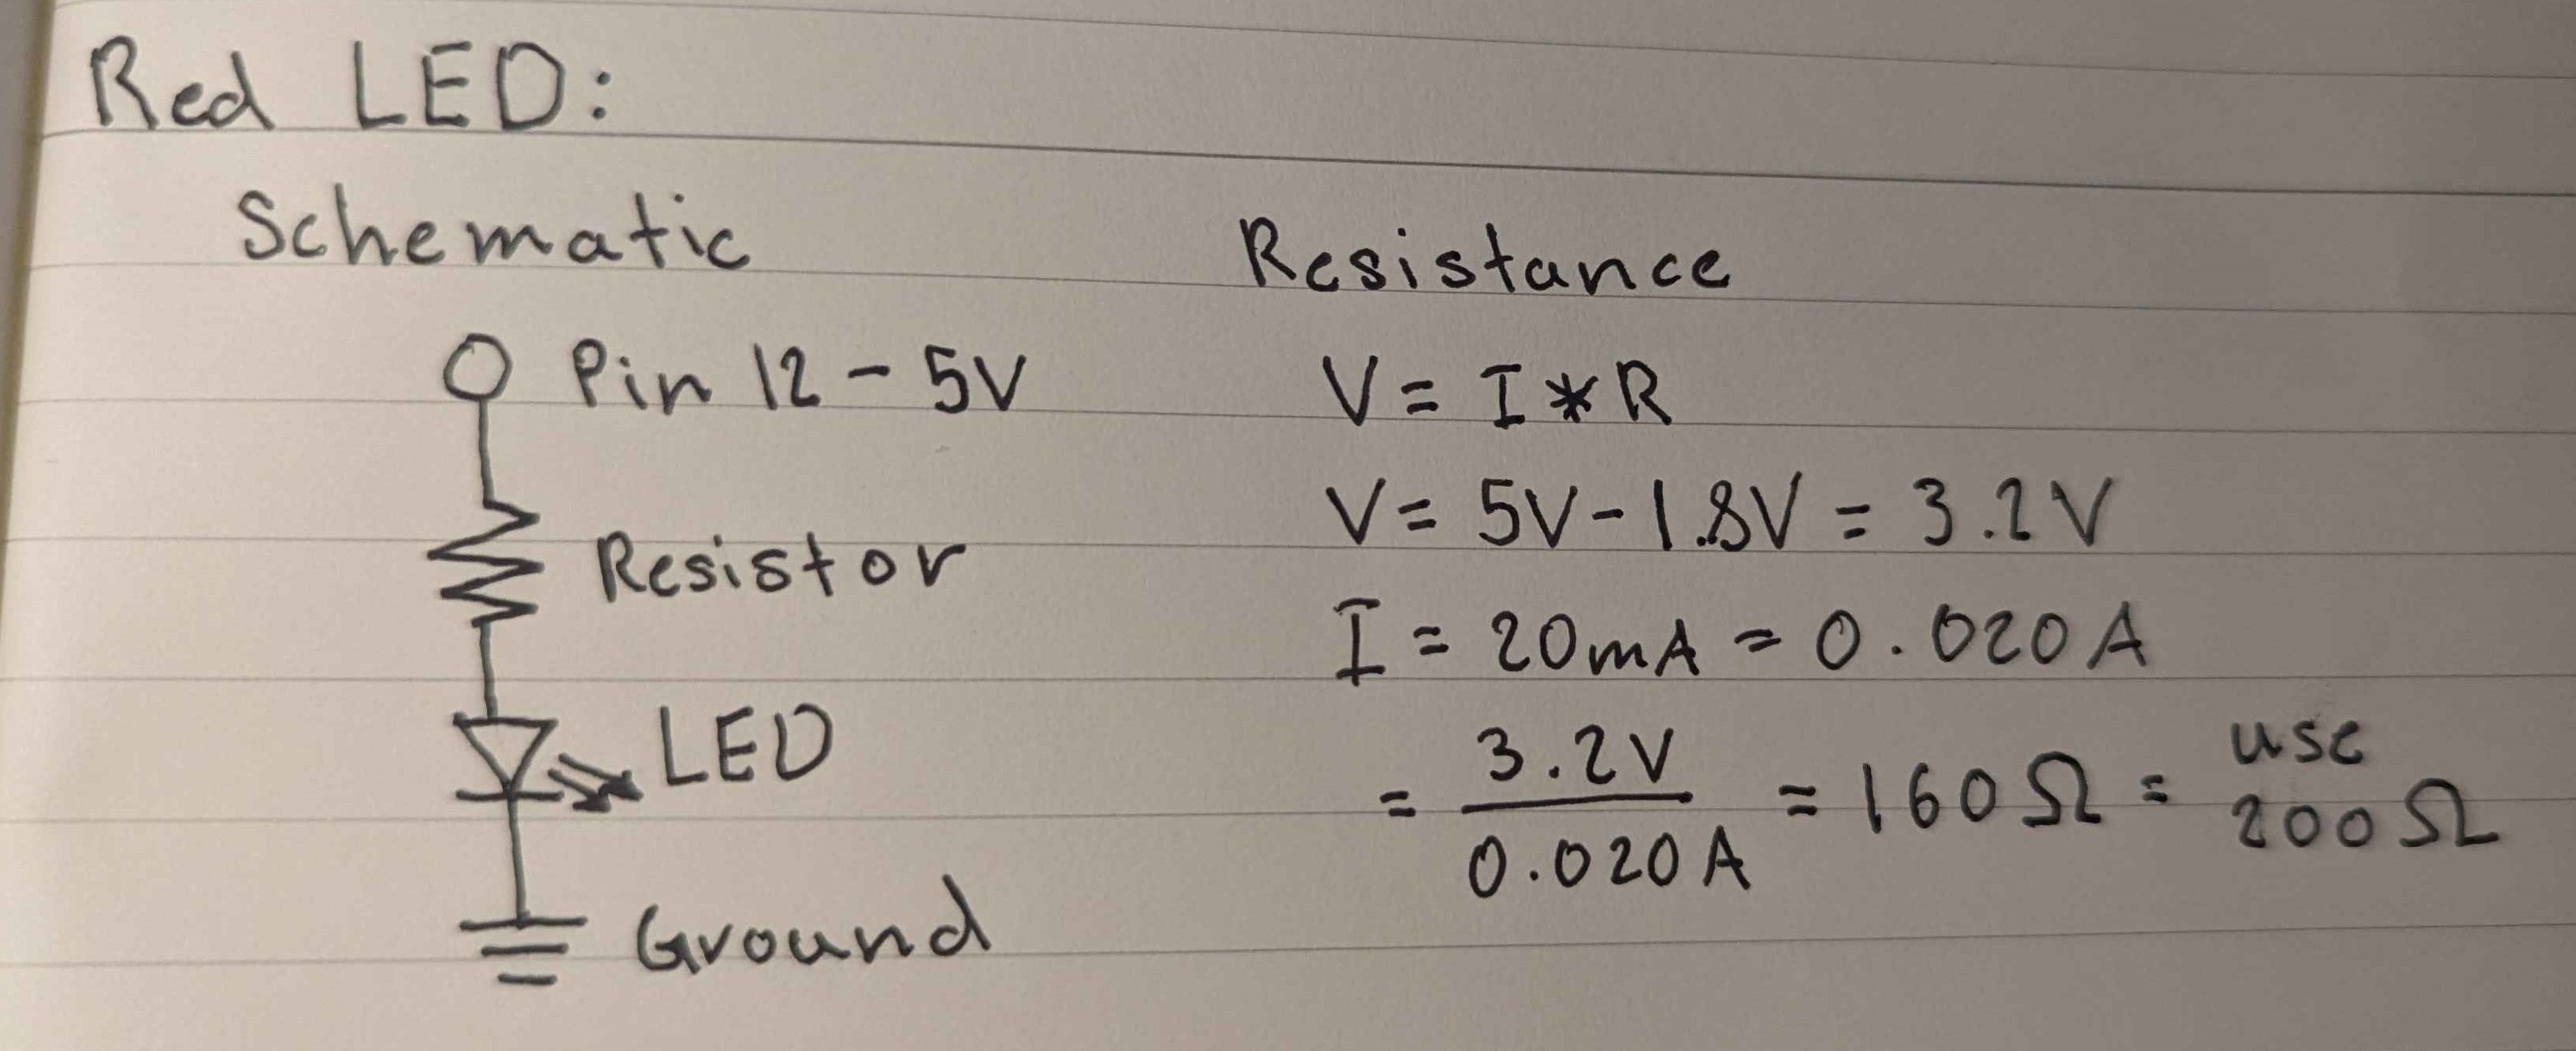 Red LED:
Schematic
Pin 12 - 5V
Resistor
LED
Ground
Resistance
V = I * R
V = 5V - 1.8V = 3.2V
I = 20mA = 0.020A
= 3.2V / 0.020A = 160Ω = use 200Ω